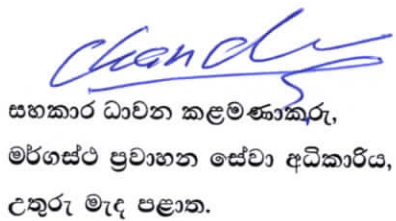 සහකාර ධාවන කළමණාකරු,
මර්ගස්ථ ප්‍රවාහන සේවා අධිකාරිය,
උතුරු මැද පළාත.